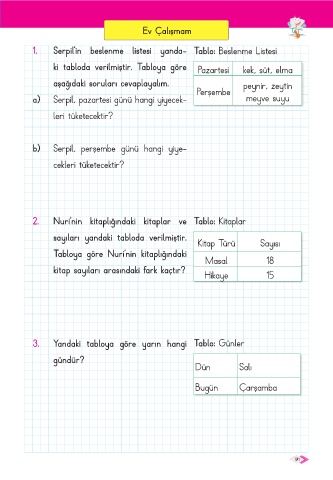 Ev Çalışmam
1. Serpil'in beslenme listesi yanda-
ki tabloda verilmiştir. Tabloya göre
aşağıdaki soruları cevaplayalım.
a) Serpil, pazartesi günü hangi yiyecek-
leri tüketecektir?
Tablo: Beslenme Listesi
Pazartesi kek, süt, elma
Perşembe peynir, zeytin
meyve suyu
b) Serpil, perşembe günü hangi yiye-
cekleri tüketecektir?
2. Nuri'nin kitaplığındaki kitaplar ve
sayıları yandaki tabloda verilmiştir.
Tabloya göre Nuri'nin kitaplığındaki
kitap sayıları arasındaki fark kaçtır?
Tablo: Kitaplar
Kitap Türü Sayısı
Masal 18
Hikaye 15
3. Yandaki tabloya göre yarın hangi
gündür?
Tablo: Günler
Dün Salı
Bugün Çarşamba